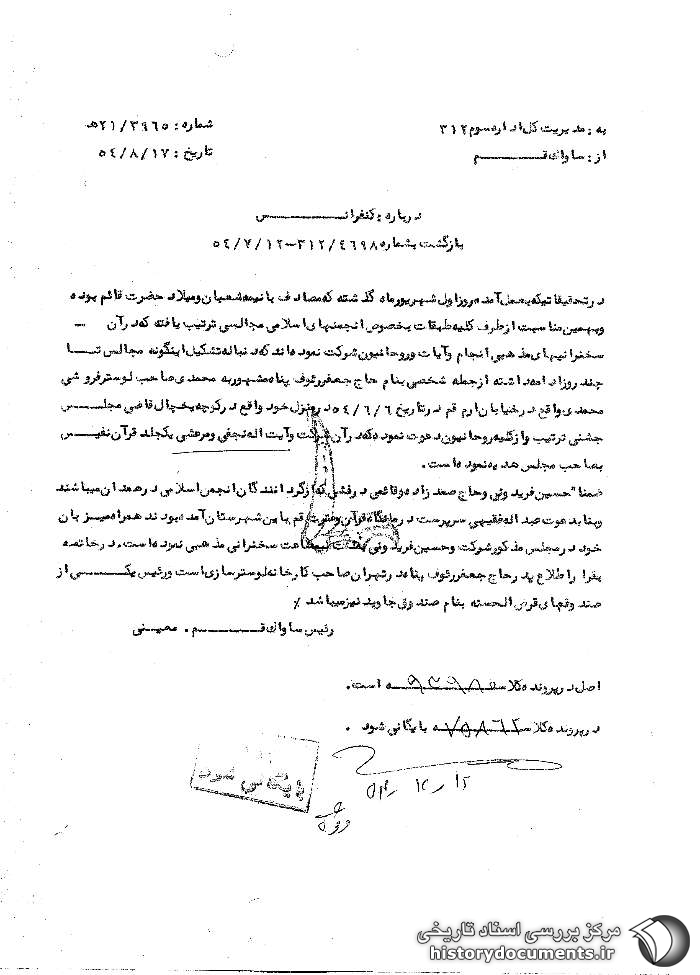 به: مدیریت کل اداره سوم ۳۱۲
شماره: ۲۱/۳۹۶۵ ه‍
از: ساواک قم
تاریخ: ۵٤/۸/۱۷
درباره: کنفرانس
بازگشت بشماره ۳۱۲/٤۶۹۸-۵٤/۷/۱۲
در تحقیقاتیکه بعمل آمده روز اول شهریور ماه گذشته که مصادف با نیمه شعبان و میلاد حضرت قائم بوده
و بهمین مناسبت از طرف کلیه طبقات بخصوص انجمنهای اسلامی مجالسی ترتیب یافته که در آن
سخنرانیهای مذهبی انجام و آیات و روحانیون شرکت نموده اند که دنباله تشکیل اینگونه مجالس تا
چند روز ادامه داشته از جمله شخصی بنام حاج جعفر رئوف پناه مشهور به محمدی صاحب لوستر فروشی
محمدی واقع در خیابان ارم قم در تاریخ ۵٤/۶/۶ در منزل خود واقع در کوچه یخچال قاضی مجلس
جشنی ترتیب و از کلیه روحانیون دعوت نموده که در آن شرکت و آیت اله نجفی و مرعشی یکجلد قرآن نفیس
بصاحب مجلس هدیه نموده است.
ضمنا" حسین فریدونی و حاج صمد زاده و قائمی درفشی که از گردانندگان انجمن اسلامی در همدان میباشند
و بنا بدعوت عبداله فقیهی سرپرست درمانگاه قرآن و عترت قم باین شهرستان آمده بودند همراه میزبان
خود در مجلس مذکور شرکت و حسین فریدونی بمدت ساعت سخنرانی مذهبی نموده است. در خاتمه
بفرا را طلاع پدر حاج جعفر رئوف پناه در تهران صاحب کارخانه لوستر سازی است و رئیس یکی از
صندوقهای قرض الحسنه بنام صندوق جاوید نیز میباشد ٪
رئیس ساواک قم. معینی
اصل در پرونده کلاسه ۹۳۹۸۵ است.
در پرونده کلاسه ۷۵۸۶۲ بایگانی شود.
۱۲ ر ۱۲ ر ۵۴
بایگانی شود
مرکز بررسی اسناد تاریخی
historydocuments.ir